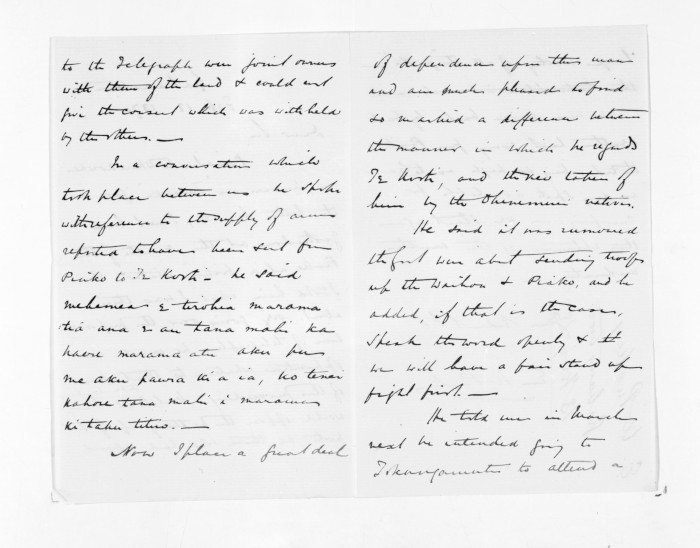 to the Telegraph were joint owners
with them of the land & could not
give the consent which was withheld
by the others. —
In a conversation which
took place between us he spoke
with reference to the supply of arms
reported to have been sent from
Piako to Te Kooti — he said
mehemea e tirohia marama
tia ana e au tana mahi ka
haere marama atu aku pu
me aku paura ki a ia, ko tenei
kahore tana mahi i marama
ki taku titiro. —
Now I place a great deal
of dependence upon this man
and am much pleased to find
so marked a difference between
the manner in which he regards
Te Kooti, and the view taken of
him by the Ohinemuri natives.
He said it was rumoured
the Govt were about sending troops
up the Waihou & Piako, and he
added, if that is the case,
Speak the word openly &
we will have a fair stand up
fight first. —
He told me in March
next he intended going to
Tokangamutu to attend a